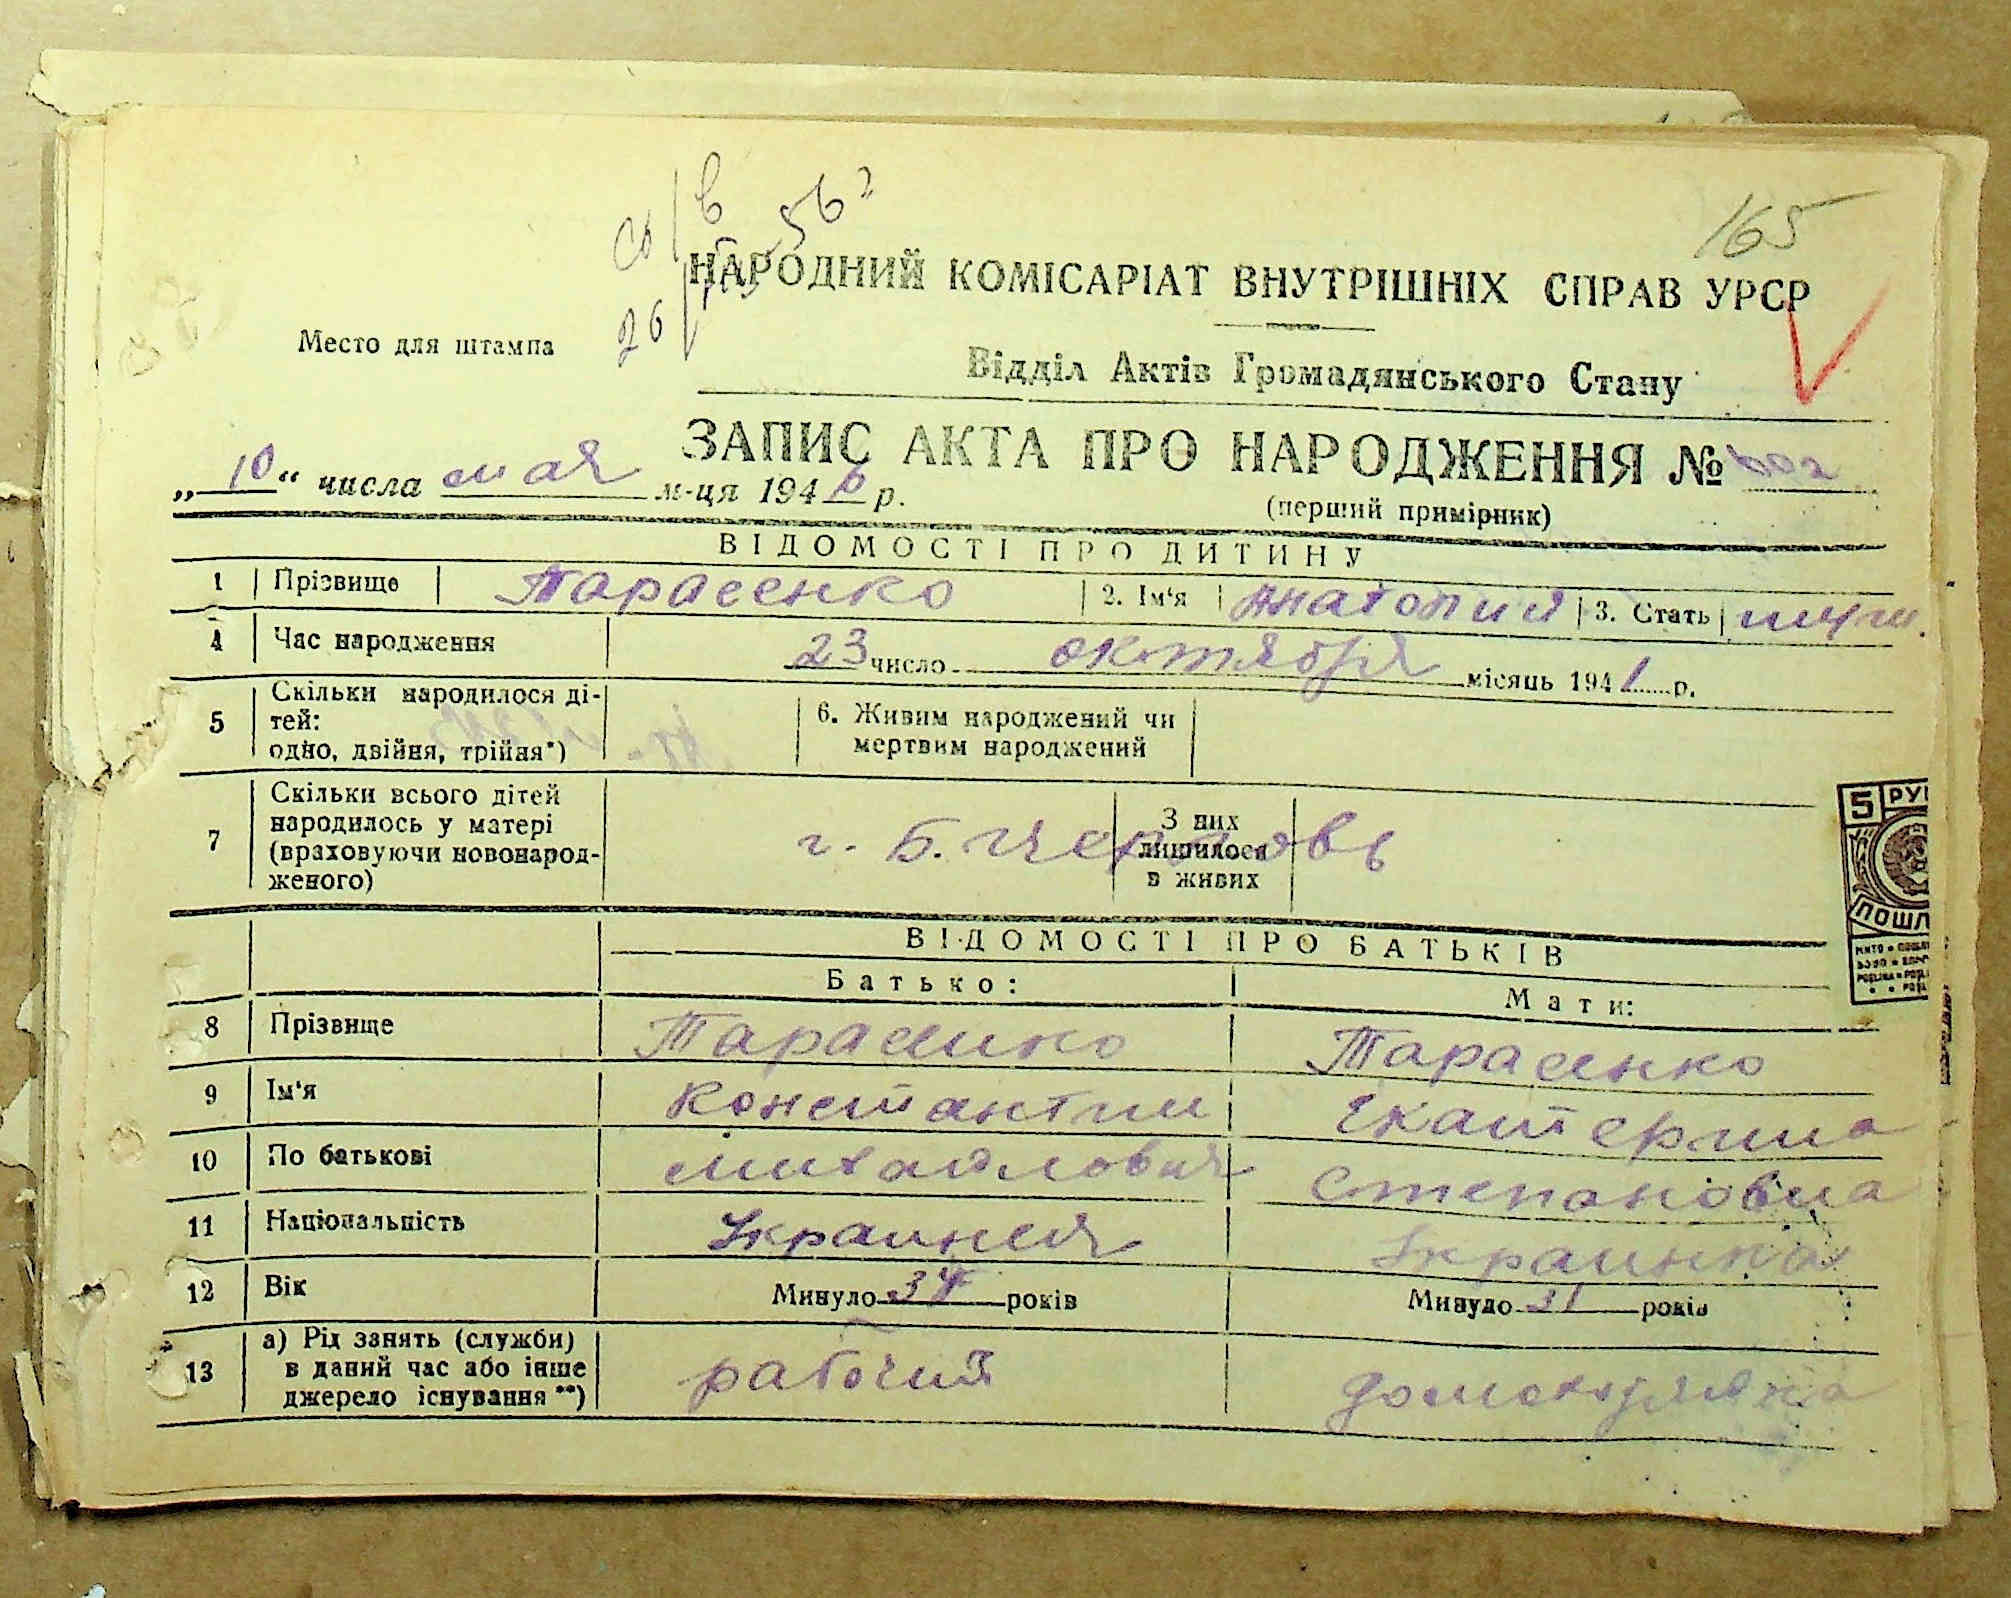 165
НАРОДНИЙ КОМІСАРІАТ ВНУТРІШНІХ СПРАВ УРСР
Место для штампа
Відділ Актів Громадянського Стану
ЗАПИС АКТА ПРО НАРОДЖЕННЯ №
„10“ числа мая м-ця 1946 р.
(перший примірник)
ВІДОМОСТІ ПРО ДИТИНУ
1 Прізвище Тарасенко 2. Ім‘я Анатолий 3. Стать муж.
4 Час народження 23 число октября місяць 1941 р.
5 Скільки народилося ді-
тей:
одно, двійня, трійня*)
6. Живим народжений чи
мертвим народжений
7 Скільки всього дітей
народилось у матері
(враховуючи новонарод-
женого)
г. Б. Церковь
З них
лишилося
в живих
5 РУ
ПОШЛ
ВІДОМОСТІ ПРО БАТЬКІВ
Батько: Мати:
8 Прізвище Тарасенко Тарасенко
9 Ім‘я Константин Екатерина
10 По батькові Михайлович Степановна
11 Національність Украинец Украинка
12 Вік Минуло 34 років Минуло 31 років
13 а) Рід занять (служби)
в даний час або інше
джерело існування **)
рабочий домохозяйка